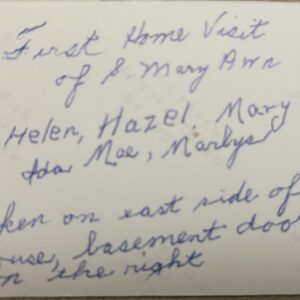 First Home Visit
of S Mary Ann
Helen, Hazel, Mary
Ida Mae, Marlys
ken on east side of
use, basement doo
n the right